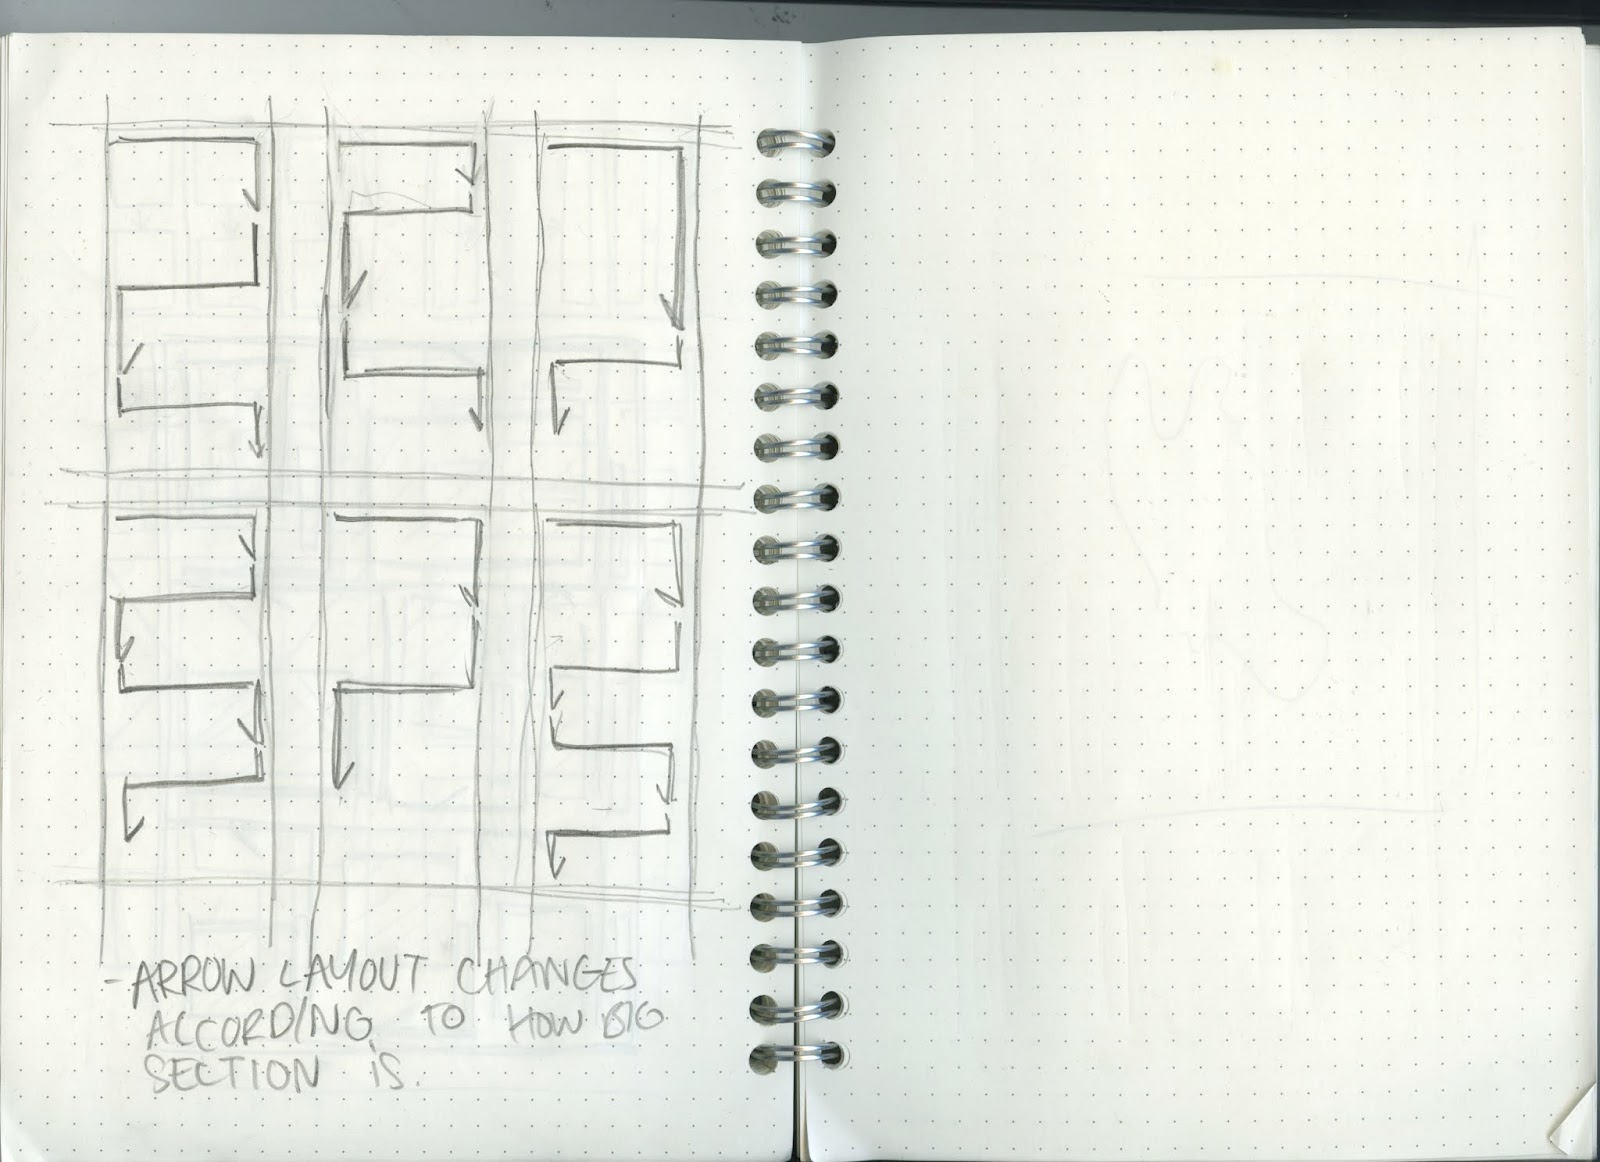 - ARROW LAYOUT CHANGES
ACCORDING TO HOW BIG
SECTION IS.